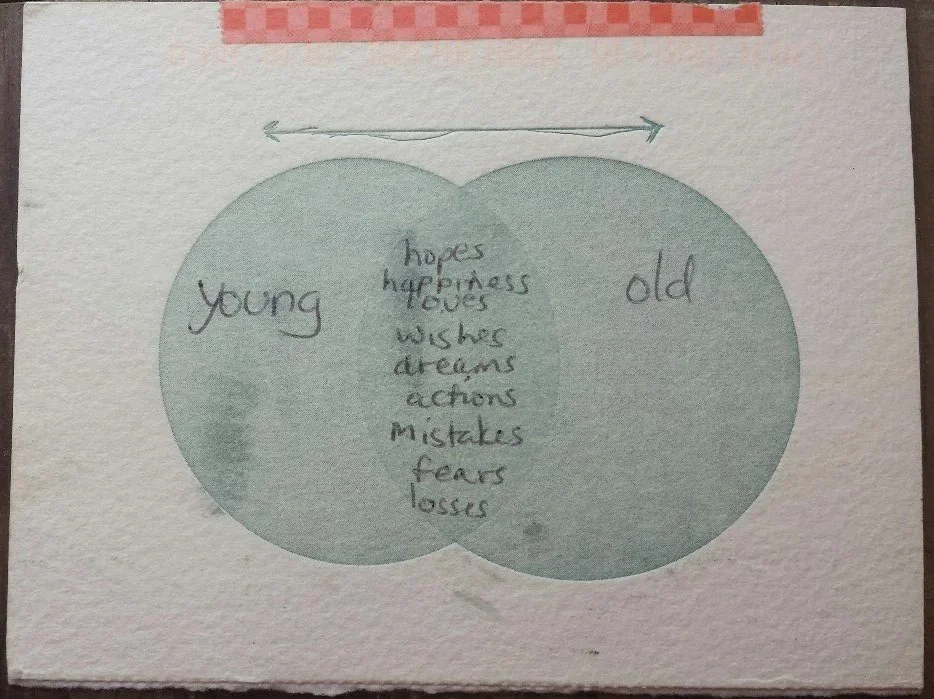 young
hopes
happiness
loves
wishes
dreams
actions
Mistakes
fears
losses
old